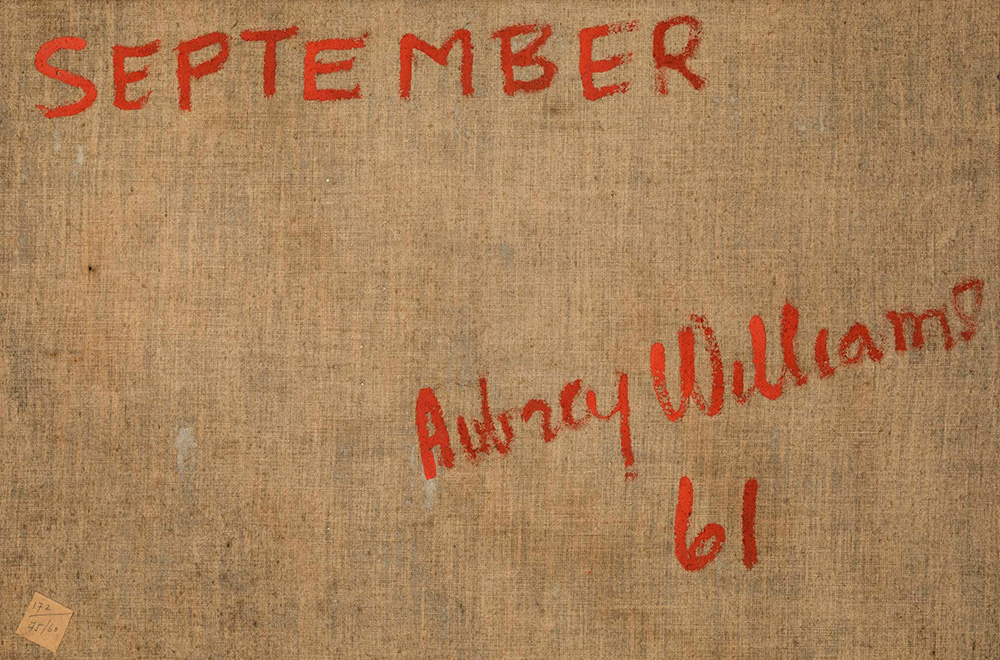 SEPTEMBER
Aubrey Williams
61
172
95/60